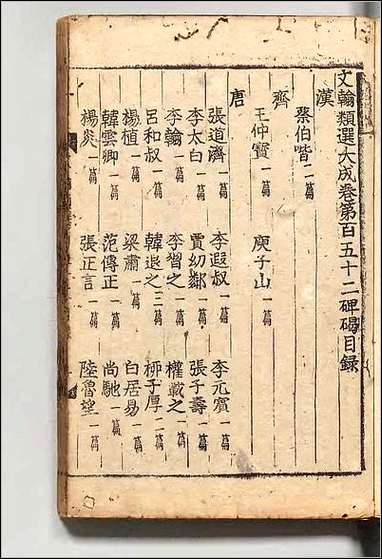 文翰類選大成卷第百五十二碑碣目録
漢
蔡伯喈二篇
齊
王仲寳一篇 庾子山一篇
唐
張道濟一篇 李遐叔一篇 李元賓一篇
李太白一篇 賈幼鄰一篇 張子壽一篇
李翰一篇 李習之一篇 權載之一篇
呂和叔一篇 韓退之三篇 柳子厚二篇
楊植一篇 梁肅一篇 白居易一篇
韓雲卿一篇 范傳正一篇 尚馳一篇
楊炎一篇 張正言一篇 陸魯望一篇